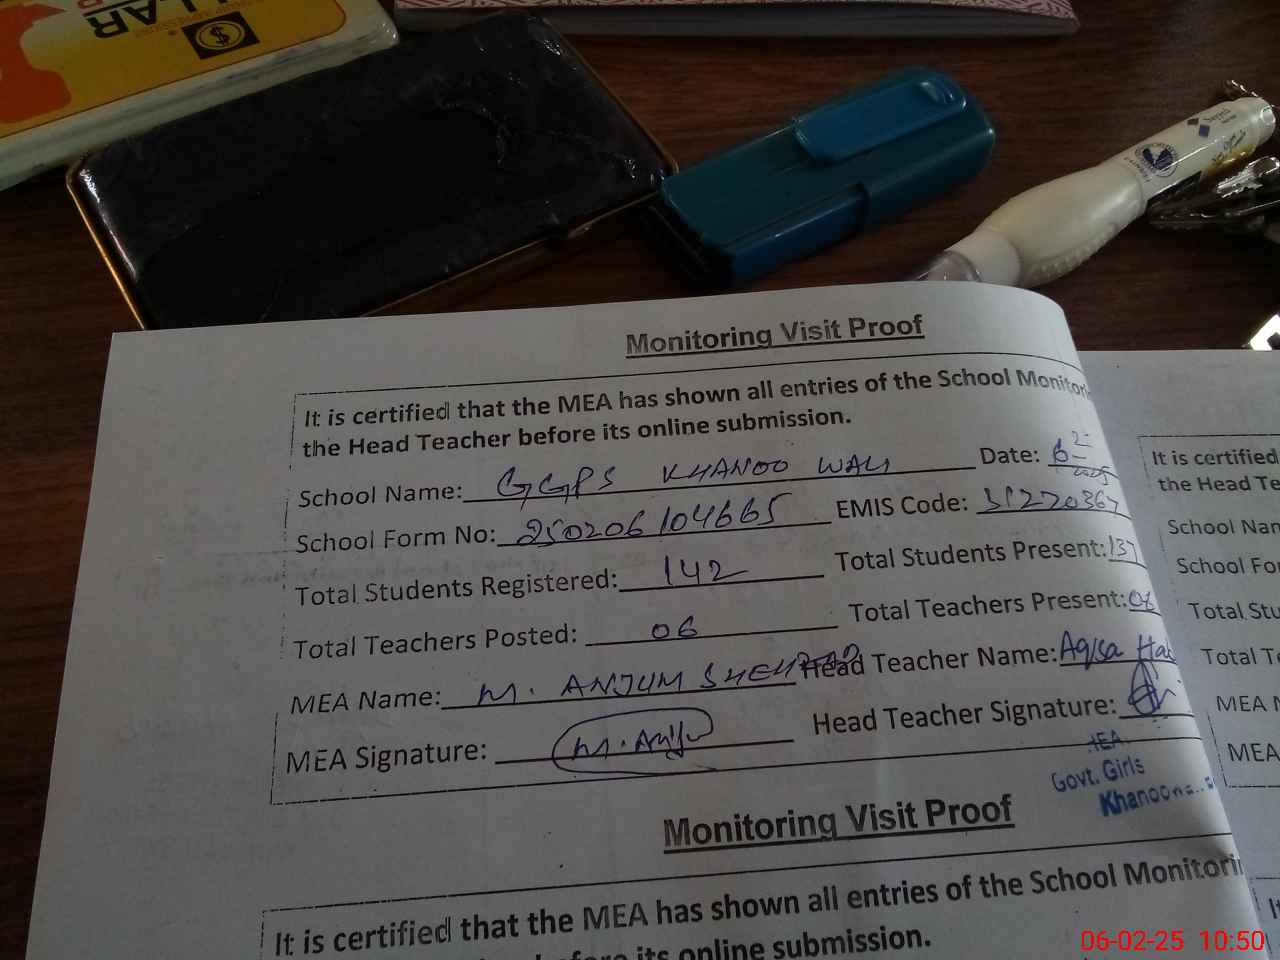 LLAR
Monitoring Visit Proof
It is certified that the MEA has shown all entries of the School Monitori
the Head Teacher before its online submission.
School Name: GGPS KHANOO WALI Date: 6-2-2025
School Form No: 250206104665 EMIS Code: 31220367
Total Students Registered: 142 Total Students Present: 137
Total Teachers Posted: 06 Total Teachers Present: 06
MEA Name: M. ANJUM SHEHZAD Head Teacher Name: Aqsa
MEA Signature: M. Anju Head Teacher Signature:
Govt. Girls
Khanoo
Monitoring Visit Proof
It is certified that the MEA has shown all entries of the School Monitori
before its online submission.
It is certified
the Head Te
School Nam
School Fo
Total Stu
Total Te
MEA N
MEA
06-02-25 10:50